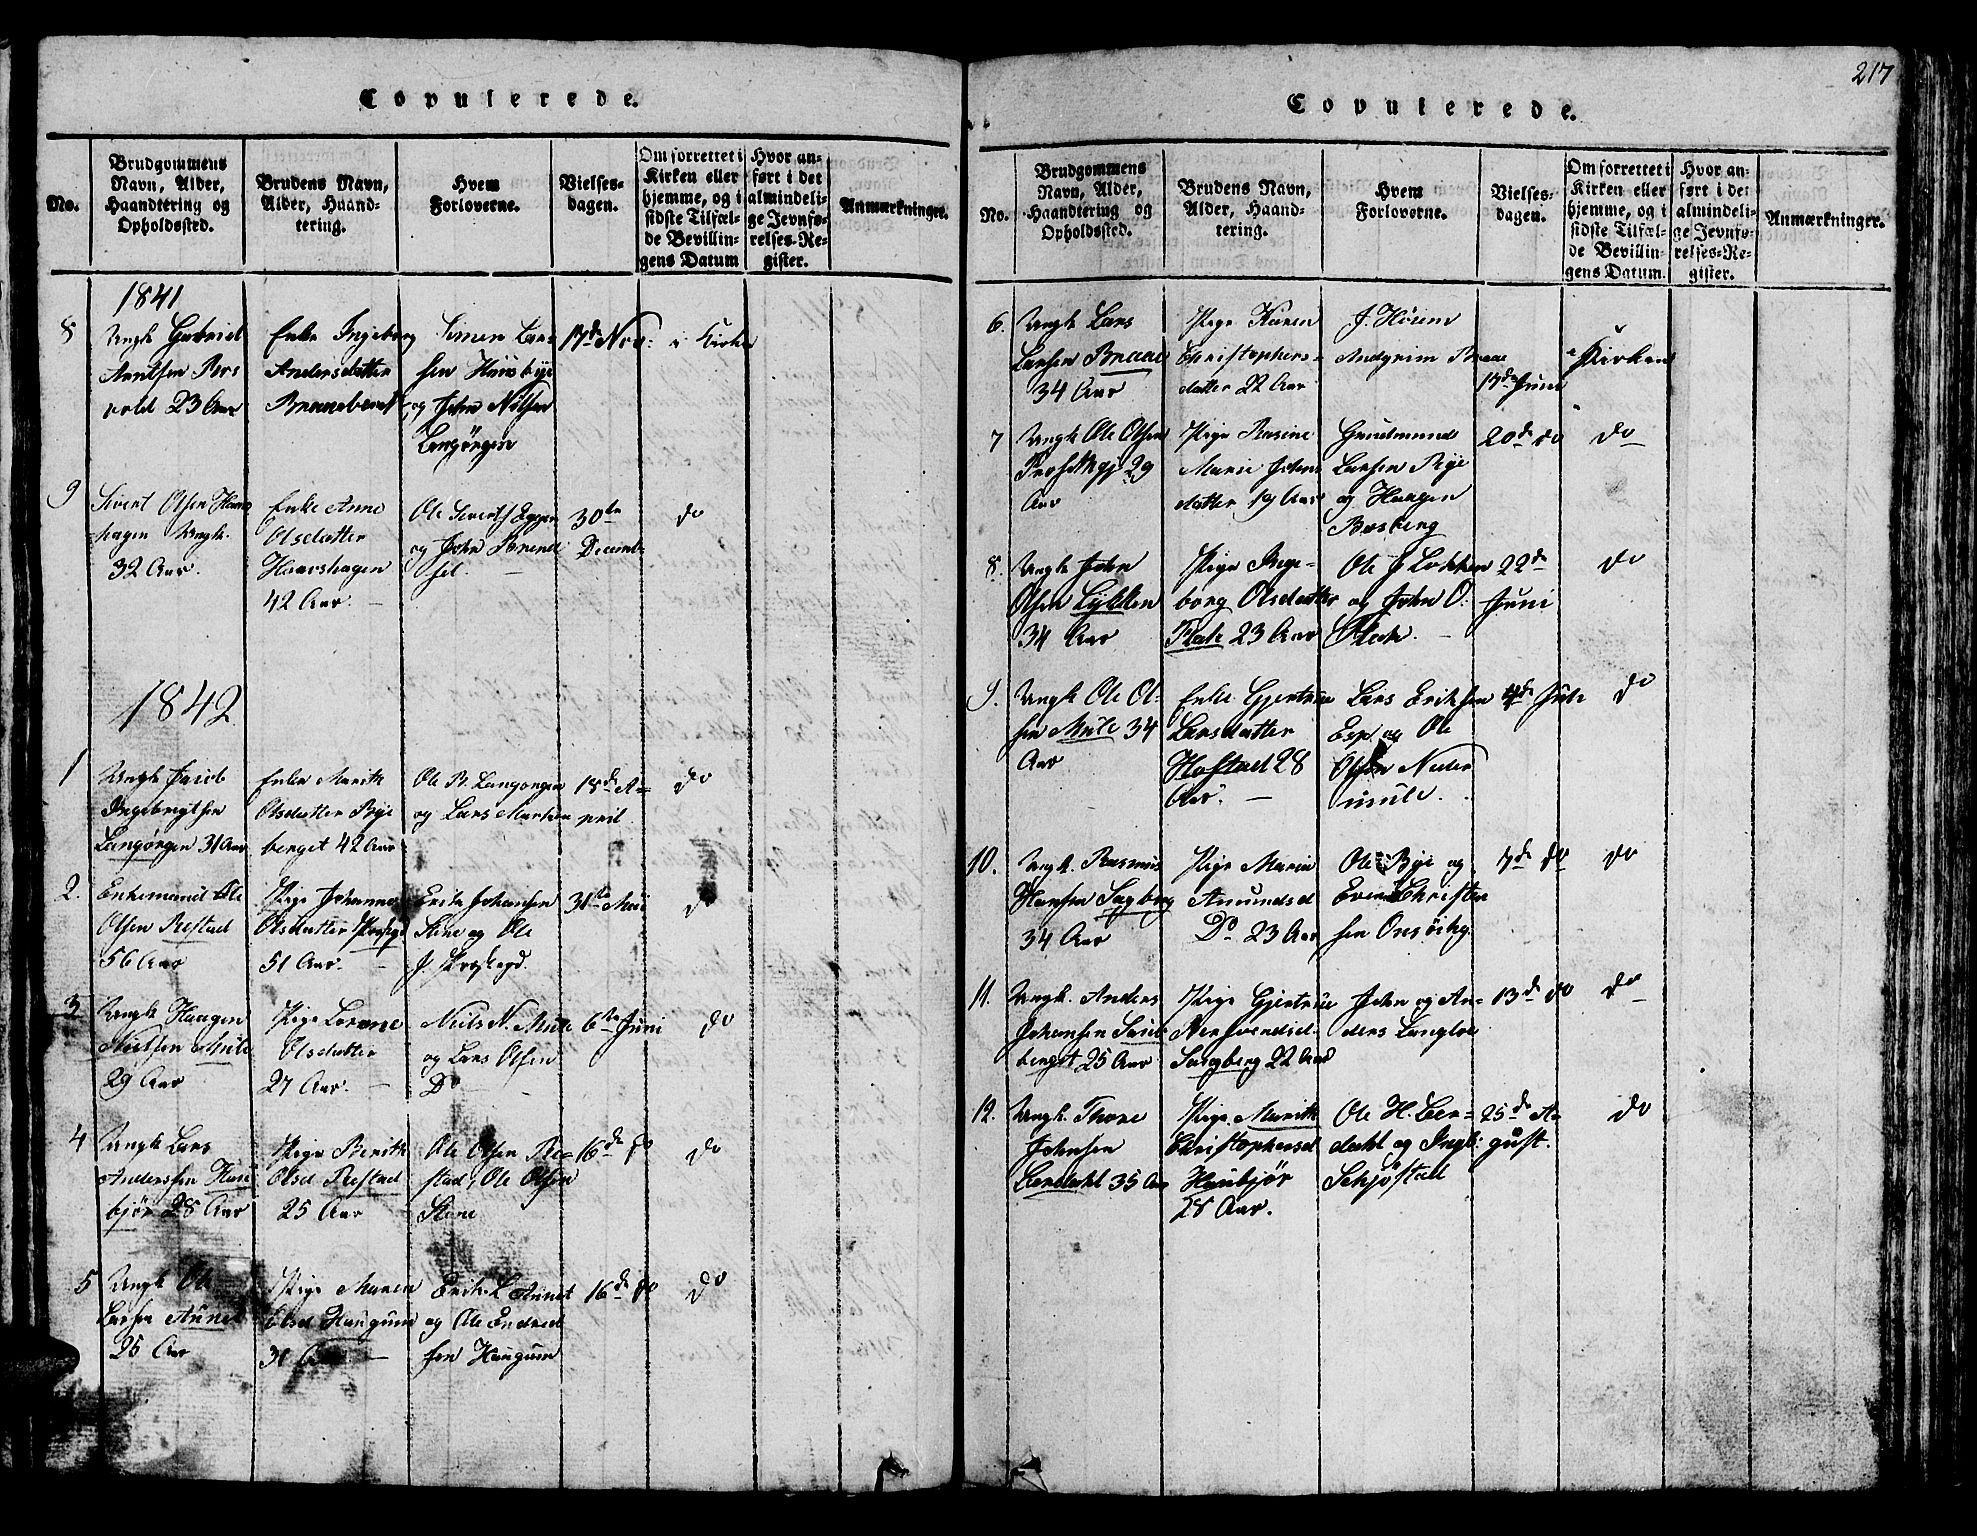 Copulerede.
No.
Brudgommens
Navn, Alder,
Haandtering og
Opholdssted.
Brudens Navn,
Alder, Haand-
tering.
Hvem
Forloverne.
Vielses-
dagen.
Om forrettet i
Kirken eller
hjemme, og i
sidste Tilfæl-
de Bevillin-
gens Datum
Hvor an-
ført i det
almindeli-
ge Jevnfø-
relses-Re-
gister.
Anmærkninger.
1841
8
Ungk Gabriel
Arntsen
23 Aar
Enke Ingeborg
Andersdatter
Simen Lar
sen
og John Nilsen
Langørgen
17de Nov:
i Kirken
9
Sivert Olsen
hagen Ungk.
32 Aar.
Enke Anne
Olsdatter
Haarshagen
42 Aar.
Ole Siverts Eggen
og John
30te
Decemb.
do
1842
1
Ungk Jacob
Ingebrigtsen
Langørgen 31 Aar
Enke Marith
Olsdatter Bye
berget 42 Aar
Ole B. Langørgen
og Lars
18de A=
pril
do
2.
Enkemand Ole
Olsen Restad
56 Aar
Pige Johanna
Olsdatter
51 Aar.
Erik Johansen
Stene og Ole
J.
31te Mai
do
3
Ungk Haagen
Nielsen Mule
29 Aar
Pige
Olsdatter
27 Aar.
Niels N. Mule
og Lars Olsen
Do
6te Juni
do
4
Ungk Lars
Andersen Hau
bjør 28 Aar
Pige Berith
Olsd Restad
25 Aar
Ole Olsen Re=
stad, Ole Olsen
Stene
16de do
do
5
Ungk Ole
Larsen Aunet
25 Aar
Pige Maren
Olsd Haugum
31 Aar
Erik L Aunet
og Ole Endred
sen Haugum
16de do
do
217
Copulerede.
No.
Brudgommens
Navn, Alder,
Haandtering og
Opholdssted.
Brudens Navn,
Alder, Haand-
tering.
Hvem
Forloverne.
Vielses-
dagen.
Om forrettet i
Kirken eller
hjemme, og i
sidste Tilfæl-
de Bevillin-
gens Datum.
Hvor an-
ført i det
almindeli-
ge Jevnfø-
relses-Re-
gister.
Anmærkninger.
6.
Ungk Lars
Larsen Braae
34 Aar
Pige Karen
Christophers=
datter 22 Aar
J.
Braae
17de Juni
i Kirken
7
Ungk Ole Olsen
29
Aar
Pige Rasine
Marie Johns
datter 19 Aar
Gudmund
Larsen Bye
og Haagen
Bosberg
20de do
do
8.
Ungk John
Olsen
34 Aar
Pige Inge=
borg Olsdatter
Flate 23 Aar
Ole J
og John O.
Flate.
22de
Juni
do
9.
Ungk Ole Ol=
sen Mule 34
Aar
Enke Gjertrue
Larsdatter
Hofstad 28
Aar.
Lars Eriksen
Esp og Ole
Olsen Neder
mule.
4de Jule
do
10.
Ungk. Rasmus
Hansen Sagberg
34 Aar
Pige Marie
Amundsd
Do 23 Aar
Ole Bye og
Even Christen
sen
7de do
do
11.
Ungk. Anders
Johansen
berget 25 Aar
Pige Gjertrue
Sagberg 22 Aar
John og An=
ders Langlo
13de do
do
12.
Ungk Thore
Johnsen
Berdahl 35 Aar
Pige Marith
Christophersd
Haubjør
28 Aar.
Ole H. Ber=
dahl og Ingb:
Schjøstad
25de A=
gust.
do